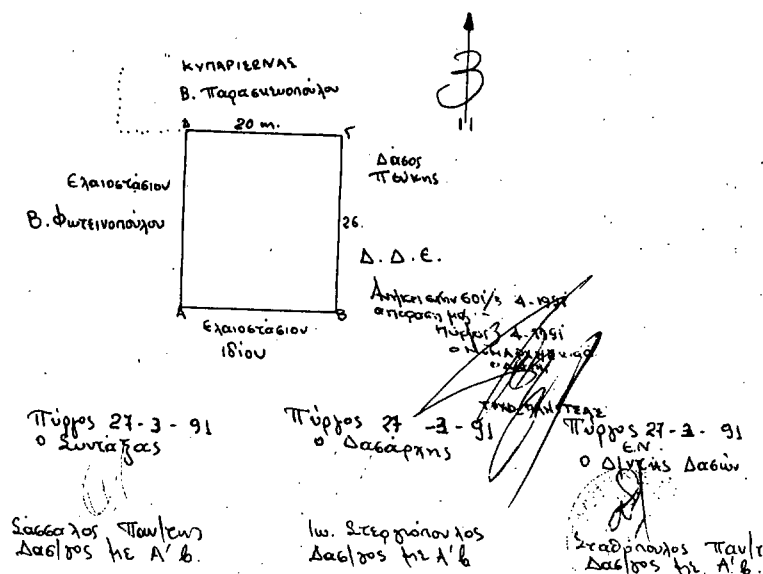 ΚΥΠΑΡΙΣΣΩΝΑΣ
Β. Παρασκευοπούλου
Δ 20 m. Γ
Δάσος
Πεύκης
Ελαιοστάσιον
Β. Φωτεινοπούλου
26.
Δ. Δ. Ε.
Α Β
Ελαιοστάσιον
Ιδίου
Ανήκει στην 601/3 4-1991
απόφαση μας
Πύργος 3 4-1991
Πύργος 27-3-91
Ο Συντάξας
Σάσσαλος Παν/της
Δασ/γος με Α' β.
Πύργος 27-3-91
Ο Δασάρχης
Ιω. Στεργιόπουλος
Δασ/γος με Α' β
Πύργος 27-3-91
Ε.Ν.
Ο Δ/ντής Δασών
Σταθόπουλος
Δασ/γος με Α' β.